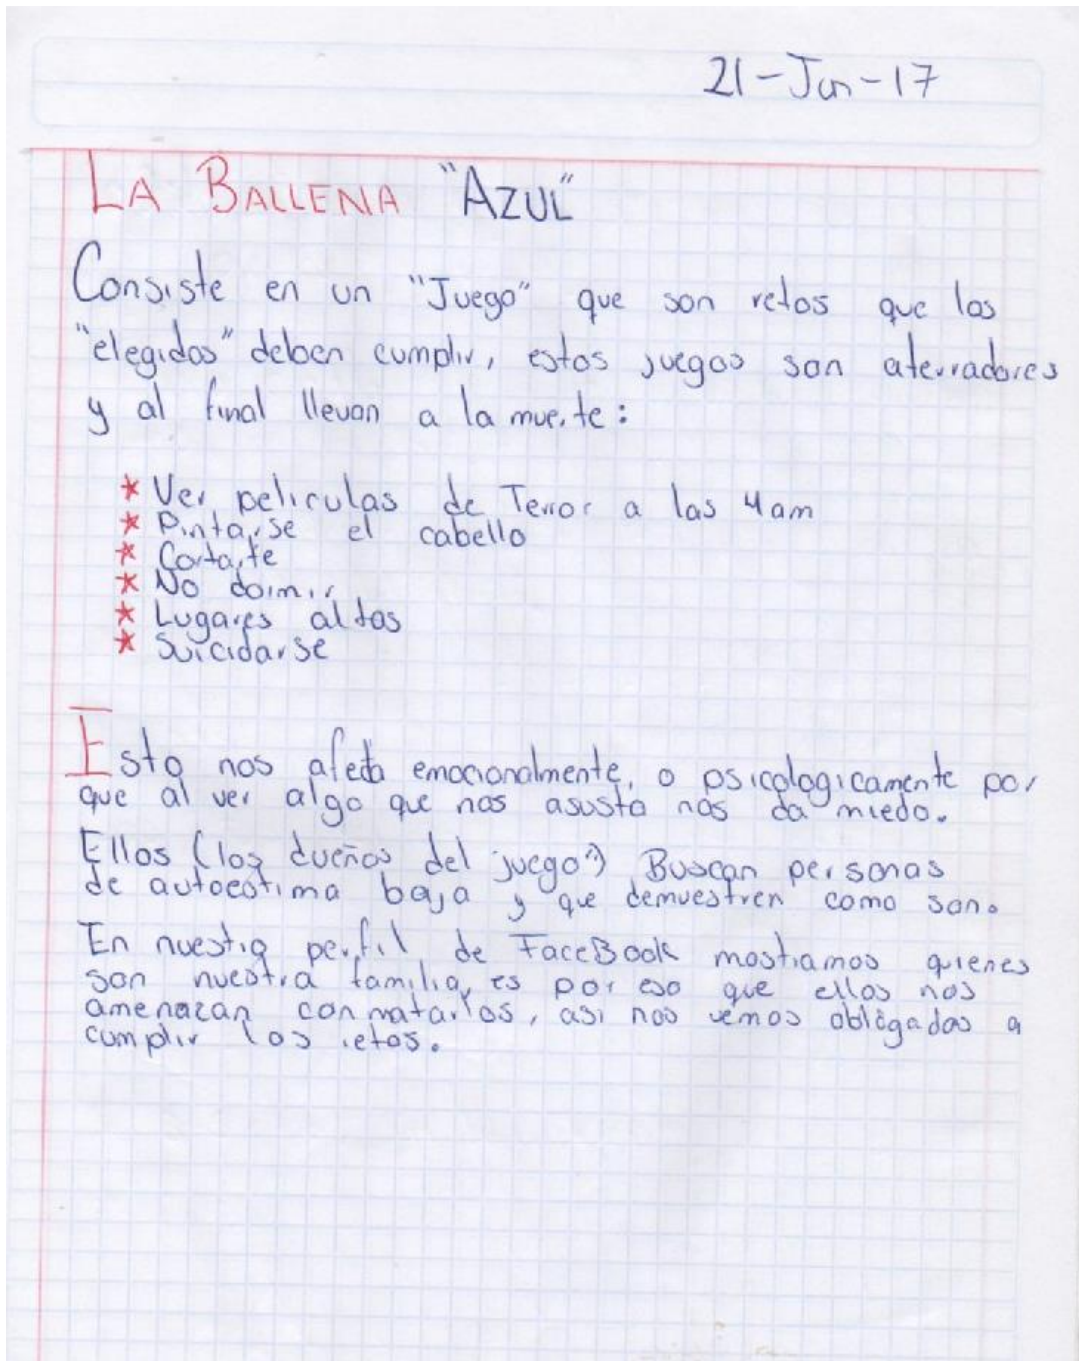 21-Jun-17
LA BALLENA "AZUL"
Consiste en un "Juego" que son retos que los
"elegidos" deben cumplir, estos juegos son aterradores
y al final llevan a la muerte:
* Ver peliculas de Terror a las 4am
* Pintarse el cabello
* Cortarte
* No dormir
* Lugares altos
* Suicidarse
Esto nos afecta emocionalmente, o psicologicamente por
que al ver algo que nos asusta nos da miedo.
Ellos (los dueños del "juego") Buscan personas
de autoestima baja y que demuestren como son.
En nuestro perfil de FaceBook mostramos quienes
son nuestra familia, es por eso que ellos nos
amenazan con matarlos, asi nos vemos obligados a
cumplir los retos.